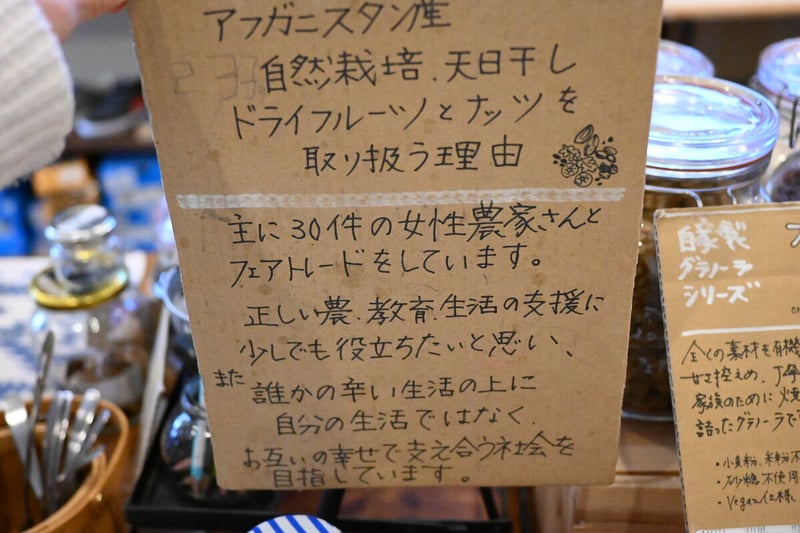 アフガニスタン産
自然栽培、天日干し
ドライフルーツとナッツを
取り扱う理由
主に30件の女性農家さんと
フェアトレードをしています。
正しい農、教育、生活の支援に
少しでも役立ちたいと思い、
また 誰かの辛い生活の上に
自分の生活ではなく、
お互いの幸せで支え合う社会を
目指しています。
自家製
グラノーラ
シリーズ
全ての素材も有機
甘さ控えめ、丁寧
家族のために焼
詰ったグラノーラで
・小麦粉、米粉不
・砂糖不使用
・Vegan仕様